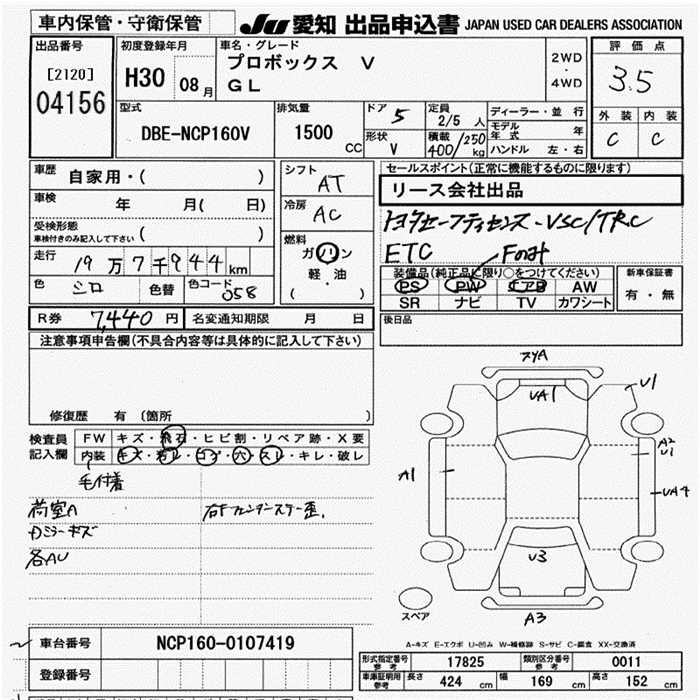 車内保管・守衛保管
JU 愛知 出品申込書 JAPAN USED CAR DEALERS ASSOCIATION
出品番号
[2120]
04156
初度登録年月
H30 08月
車名・グレード
プロボックス V
GL
2WD
・
4WD
評価点
3.5
外装 内装
C C
型式
DBE-NCP160V
排気量
1500 CC
ドア 5
形状 V
定員
2/5 人
積載
400/250 kg
ディーラー・並行
モデル年式 年
ハンドル 左・右
車歴 自家用・( )
車検 年 月( 日)
受検形態
車検付きのみ記入して下さい ( )
走行 19万7千944km
色 シロ 色替 色コード 058
シフト
AT
冷房
AC
燃料
ガソリン
軽・油
( )
セールスポイント(正常に機能するものに限ります)
リース会社出品
トヨタセーフティセンス・VSC/TRC
ETC Fのみ
装備品(純正品に限り○をつけてください)
PS PW エアB AW
SR ナビ TV カワシート
新車保証書
有・無
R券 7,440円 名変通知期限 月 日
後日品
注意事項申告欄(不具合内容等は具体的に記入して下さい)
修復歴 有 (箇所 )
検査員
記入欄
FW キズ・飛石・ヒビ割・リペア跡・X要
内装 キズ・汚レ・コゲ・穴・スレ・キレ・破レ
毛付着
荷室A
Dミラーキズ
各AU
右Fフェンダーステー歪.
スソA
UA1
U1
A2
U1
UA4
A1
U3
A3
スペア
A-キズ E-エクボ U-凹み W-補修跡 S-サビ C-腐食 XX-交換済
車台番号 NCP160-0107419
登録番号
形式指定番号 参考 17825 類別区分番号 参考 0011
車庫証明用 参考 長さ 424 cm 幅 169 cm 高さ 152 cm